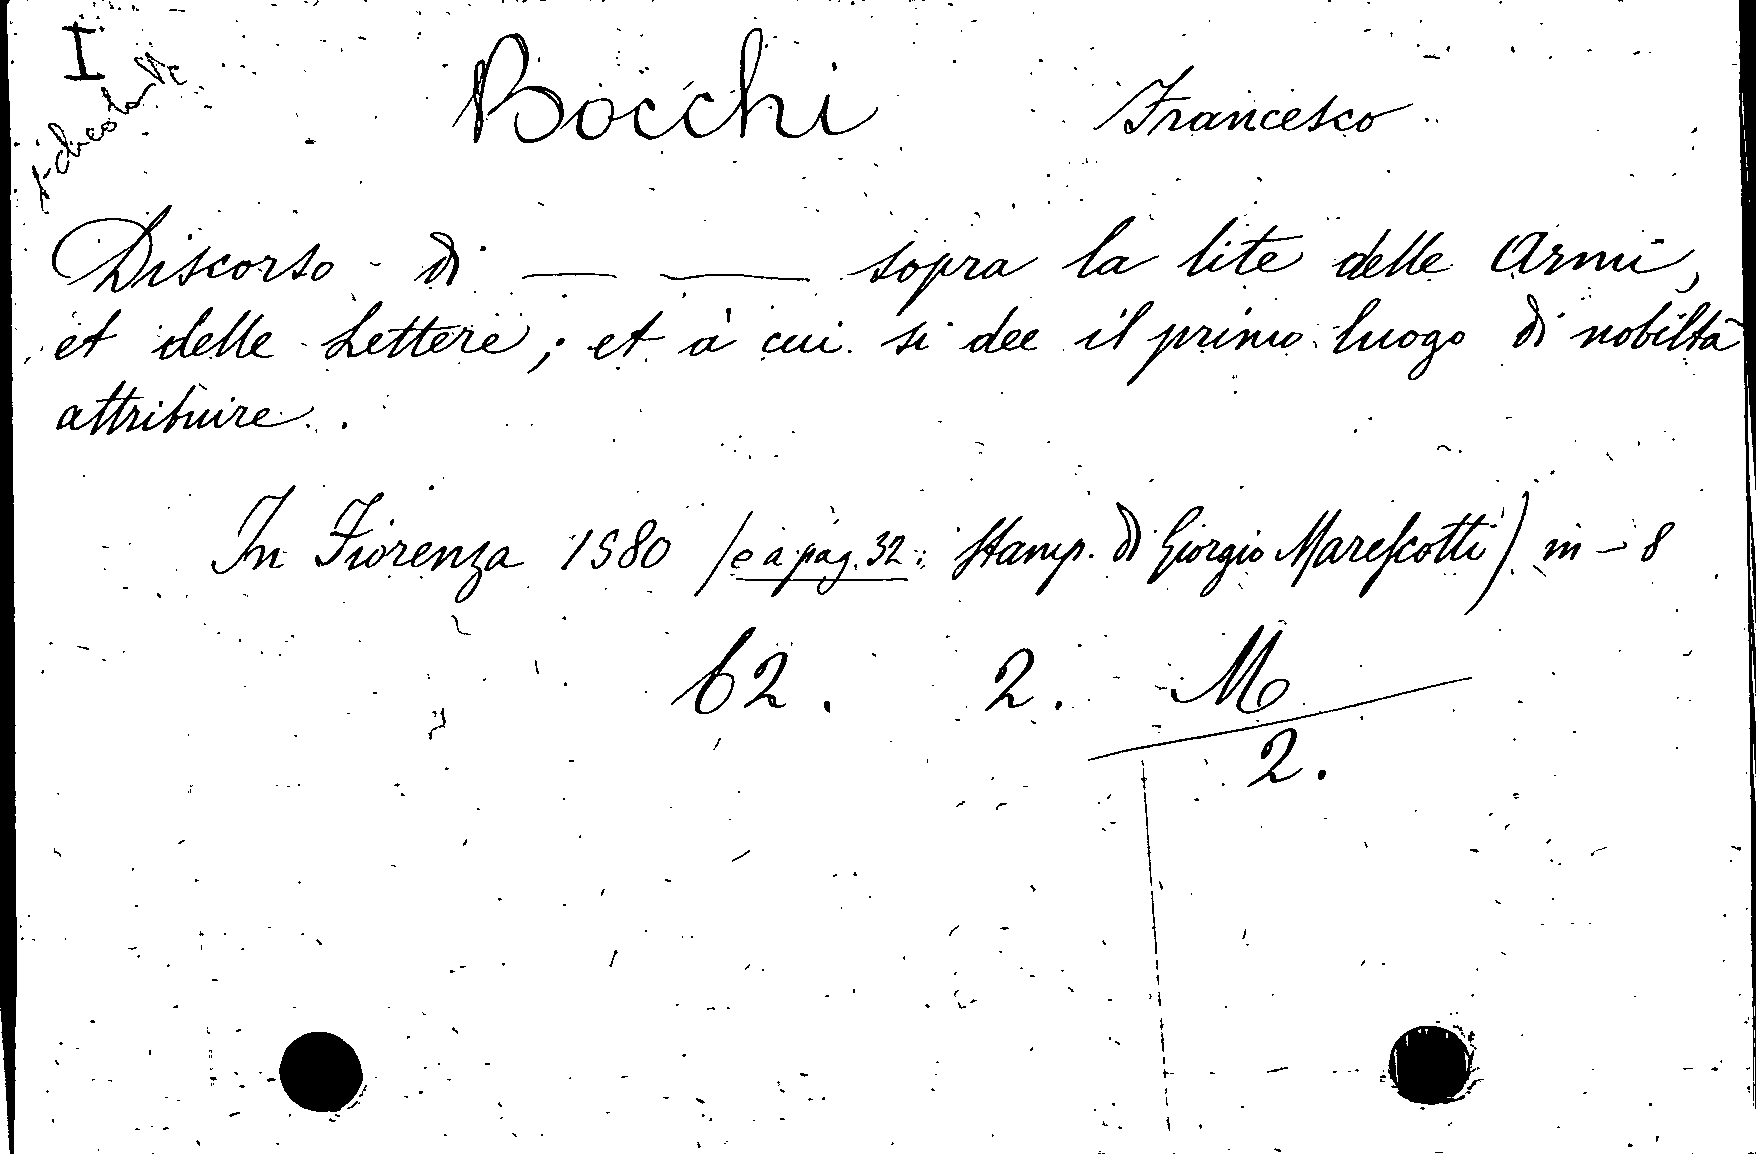 I
Bocchi Francesco
Discorso di — — sopra la lite delle Armi,
et delle Lettere; et à cui si dee il primo luogo di nobiltà
attribuire.
In Fiorenza 1580 (e a pag. 32: Stamp. di Giorgio Marescotti) in-8
62. 2. M
2.